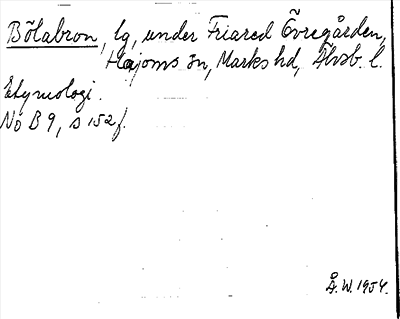 Bölabron, lg, under Friared Övregården,
Hajoms sn, Marks hd, Älvsb. l.
Etymologi.
NoB 9, s 152 f.
Å.W. 1954.